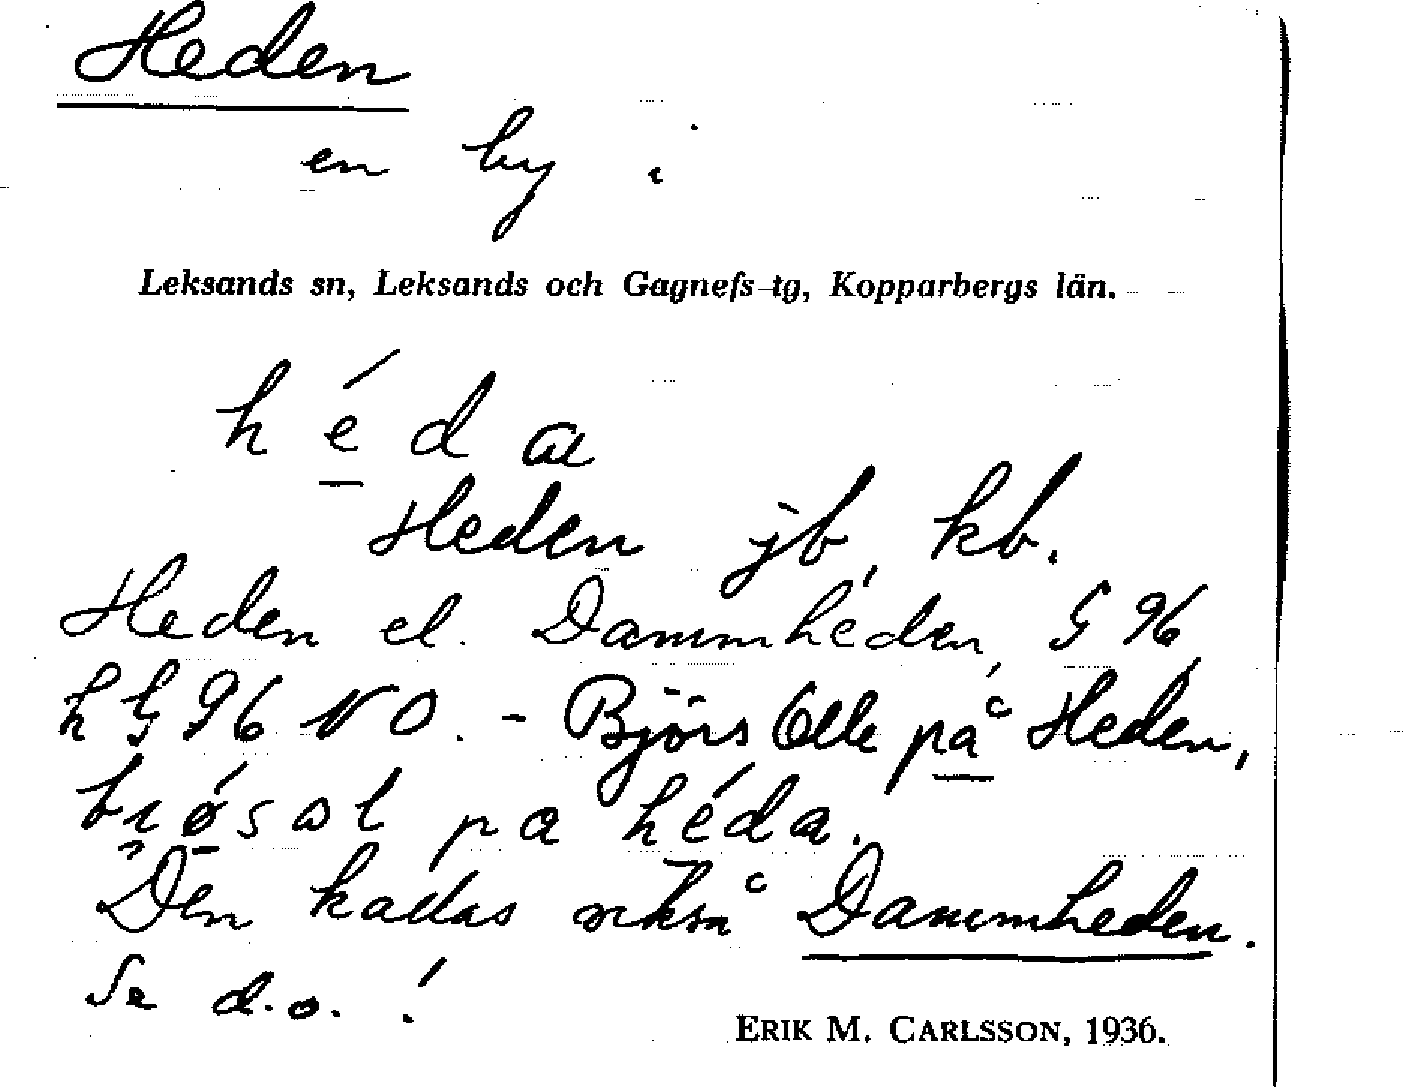 Heden
en by i
Leksands sn, Leksands och Gagnefs tg, Kopparbergs län.
héda
Heden jb, kb.
Heden el. Dammheden, G 96,
h G 96 NO. - Björs Olle på Heden,
pa héda.
Den kallas också Dammheden.
Se d.o.!
ERIK M. CARLSSON, 1936.